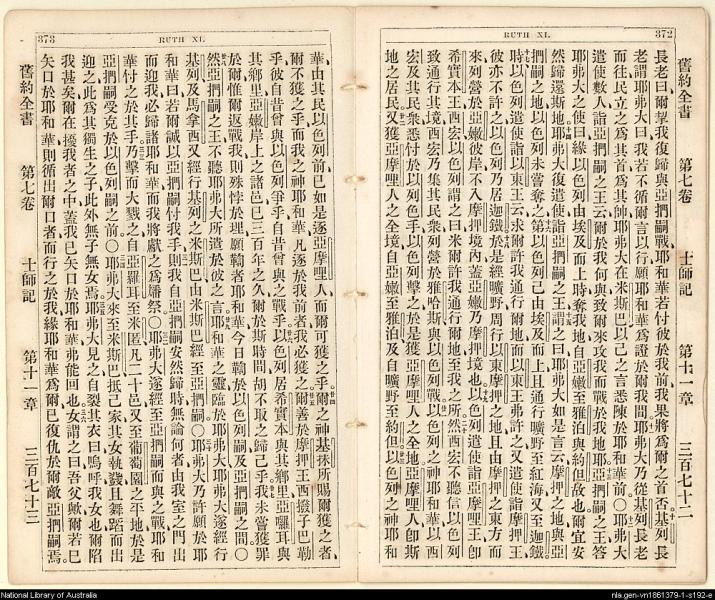 舊約全書 第七卷 士師記 第十一章 三百七十二
RUTH XI. 372
長老曰爾挈我復歸與亞捫嗣戰耶和華若付彼於我前我果將為爾之首否基列長
老謂耶弗大曰我若不循爾言以行願耶和華為證於爾我間耶弗大乃從基列長老
而往民立之為其首為其帥耶弗大在米斯巴以己之言悉陳於耶和華前○耶弗大
遣使數人詣亞捫嗣之王云爾於我何與致爾來攻我而戰於我地耶亞捫嗣之王答
耶弗大之使曰緣以色列由埃及而上時奪我地自亞嫩至雅泊與約但故也爾宜安
然歸還斯地耶弗大復遣使詣亞捫嗣之王謂之曰耶弗大如是言云摩押之地與亞
捫嗣之地以色列未嘗奪之第以色列己由埃及而上且通行曠野至紅海又至迦鐵
時以色列遣使詣以東王云求爾許我通行爾地而以東王弗許之又遣使詣摩押王
彼亦不許之以色列乃居迦鐵於是經曠野周行以東摩押之地且由摩押之東方而
來列營於亞嫩彼岸不入摩押境內蓋亞嫩乃摩押境也以色列遣使詣亞摩哩王卽
希實本王西宏以色列謂之曰米爾許我通行爾地至我之所然西宏不聽信以色列
致通行其境西宏乃集其民衆列營於雅哈斯與以色列戰以色列之神耶和華以西
宏及其民衆悉付於以色列手以色列擊之於是獲亞摩哩人之全地亞摩哩人卽斯
地之居民又獲亞摩哩人之全境自亞嫩至雅泊及自曠野至約但以色列之神耶和
373 RUTH XI.
華由其民以色列前已如是逐亞摩哩人而爾可獲之乎爾之神基抹所賜爾獲之者
爾不獲之乎而我之神耶和華凡逐於我前者我必獲之爾善於摩押王西撥子巴勒
乎彼自昔曾與以色列爭乎自昔曾與之戰乎以色列居希實本與其鄉里亞囉耳與
其鄉里亞嫩岸上之諸邑已三百年之久爾於斯時間胡不取之歸己乎我未嘗獲罪
於爾惟爾返戰我則殊悖於理願鞫者耶和華今日鞫於以色列嗣及亞捫嗣之間○
然亞捫嗣之王不聽耶弗大所遣於彼之言耶和華之靈臨於耶弗大耶弗大遂經行
基列及馬拿西又經行基列之米斯巴由米斯巴經至亞捫嗣○耶弗大乃許願於耶
和華曰若爾誠以亞捫嗣付我手則我自亞捫嗣安然歸時無論何者由我室之門出
而迎我必歸諸耶和華而我將獻之為燔祭○耶弗大遂經至亞捫嗣而與之戰耶和
華付之於其手乃擊而大戮之自亞羅耳至米匿凡二十邑又至葡萄園之平地於是
亞捫嗣受克於以色列嗣之前○耶弗大來至米斯巴抵己家其女執鼗且舞蹈而出
迎之此為其獨生之子此外無子無女焉耶弗大見之自裂其衣曰嗚呼我女也爾陷
我甚矣爾在擾我者之中蓋我已矢口於耶和華弗能回也女謂之曰吾父歟爾若已
矢口於耶和華則循出爾口者而行之於我緣耶和華為爾已復仇於爾敵亞捫嗣焉
舊約全書 第七卷 士師記 第十一章 三百七十三
National Library of Australia
nla.gen-vn1861379-1-s192-e